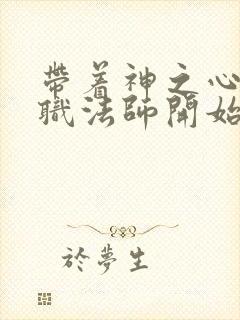 帶着神之心
職法師開始
於夢生